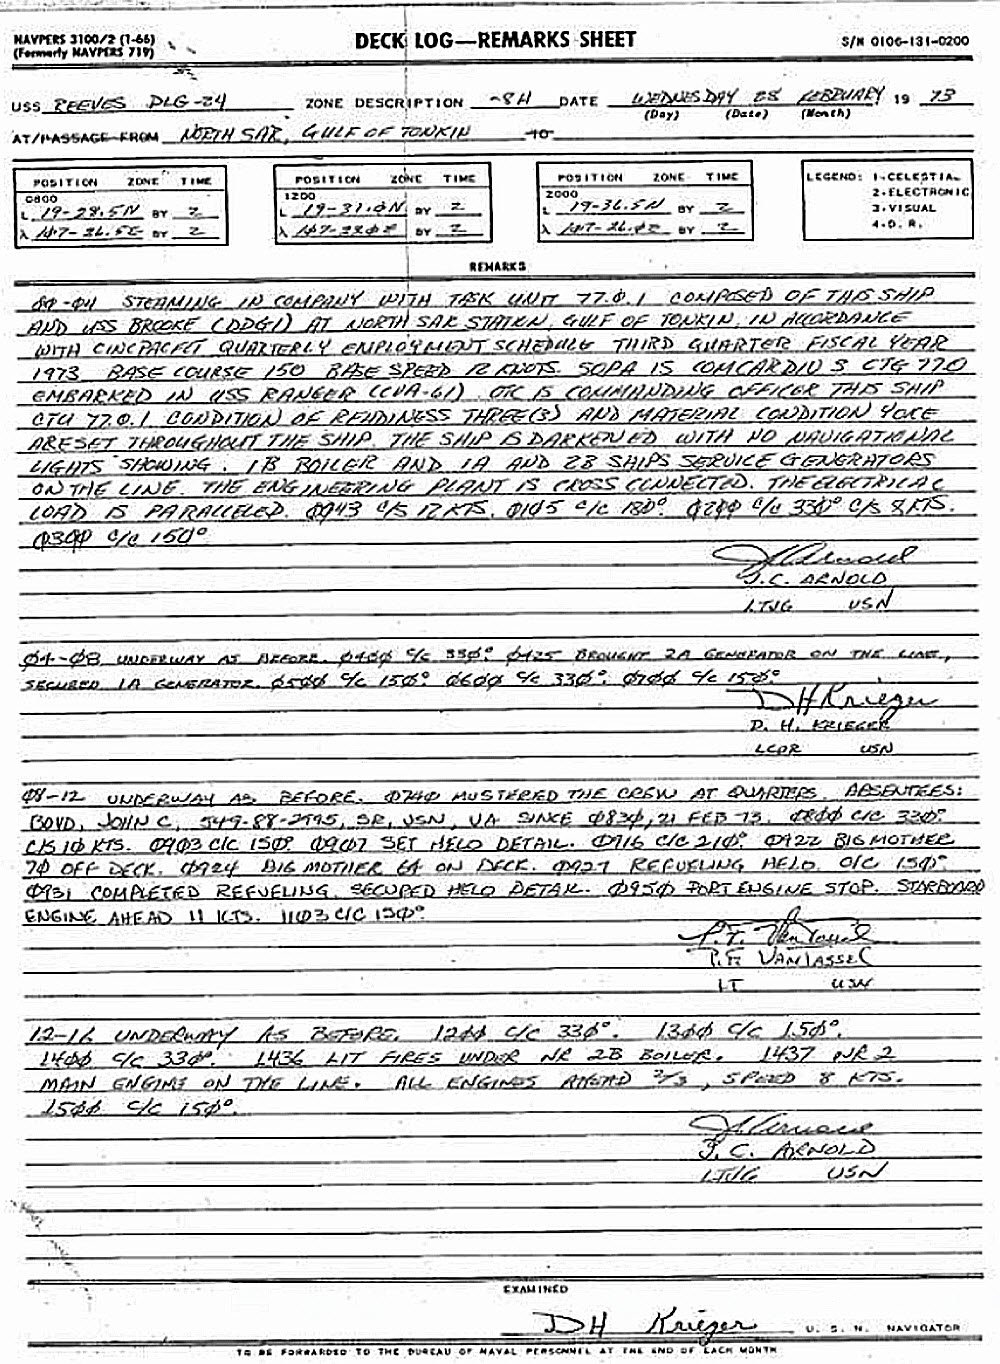 NAVPERS 3100/2 (1-66)
(Formerly NAVPERS 719)
DECK LOG—REMARKS SHEET
S/N 0106-131-0200
USS REEVES DLG-24 ZONE DESCRIPTION -8H DATE WEDNESDAY 28 FEBRUARY 19 73
(Day) (Date) (Month)
AT/PASSAGE FROM NORTH SAR, GULF OF TONKIN TO
POSITION ZONE TIME
0800
L 19-28.5N BY 2
λ 107-26.5E BY 2
POSITION ZONE TIME
1200
L 19-31.0N BY 2
λ 107-32.0E BY 2
POSITION ZONE TIME
2000
L 19-36.5N BY 2
λ 107-26.0E BY 2
LEGEND: 1-CELESTIAL
2-ELECTRONIC
3-VISUAL
4-D. R.
REMARKS
00-04 STEAMING IN COMPANY WITH TASK UNIT 77.0.1 COMPOSED OF THIS SHIP
AND USS BROOKE (DDG1) AT NORTH SAR STATION, GULF OF TONKIN, IN ACCORDANCE
WITH CINCPACFLT QUARTERLY EMPLOYMENT SCHEDULE THIRD QUARTER FISCAL YEAR
1973. BASE COURSE 150 BASE SPEED 12 KNOTS. SOPA IS COMCARDIV 3 CTG 77.0
EMBARKED IN USS RANGER (CVA-61) OTC IS COMMANDING OFFICER THIS SHIP
CTU 77.0.1 CONDITION OF READINESS THREE(3) AND MATERIAL CONDITION YOKE
ARE SET THROUGHOUT THE SHIP. THE SHIP IS DARKENED WITH NO NAVIGATIONAL
LIGHTS SHOWING. 1B BOILER AND 1A AND 2B SHIPS SERVICE GENERATORS
ON THE LINE. THE ENGINEERING PLANT IS CROSS CONNECTED. THE ELECTRICAL
LOAD IS PARALLELED. 0043 C/S 12 KTS. 0105 C/C 180°. 0200 C/C 330° C/S 8 KTS.
0300 C/C 150°
J.C. ARNOLD
LTJG USN
04-08 UNDERWAY AS BEFORE. 0400 C/C 330°. 0425 BROUGHT 2A GENERATOR ON THE LINE,
SECURED 1A GENERATOR. 0500 C/C 150°. 0600 C/C 330°. 0700 C/C 150°
DH Krieger
D. H. KRIEGER
LCDR USN
08-12 UNDERWAY AS BEFORE. 0740 MUSTERED THE CREW AT QUARTERS. ABSENTEES:
BOYD, JOHN C, 549-88-2995, SR, USN, UA SINCE 0830, 21 FEB 73. 0800 C/C 330°.
C/S 10 KTS. 0903 C/C 150°. 0907 SET HELO DETAIL. 0916 C/C 210°. 0922 BIG MOTHER
70 OFF DECK. 0924 BIG MOTHER 64 ON DECK. 0927 REFUELING HELO. C/C 150°.
0931 COMPLETED REFUELING. SECURED HELO DETAIL. 0950 PORT ENGINE STOP. STARBOARD
ENGINE AHEAD 11 KTS. 1103 C/C 150°.
P.F. VANTASSEL
LT USN
12-16 UNDERWAY AS BEFORE. 1200 C/C 330°. 1300 C/C 150°.
1400 C/C 330°. 1436 LIT FIRES UNDER NR 2B BOILER. 1437 NR 2
MAIN ENGINE ON THE LINE. ALL ENGINES AHEAD 2/3, SPEED 8 KTS.
1500 C/C 150°.
J. C. ARNOLD
LTJG USN
EXAMINED
DH Krieger U. S. N. NAVIGATOR
TO BE FORWARDED TO THE BUREAU OF NAVAL PERSONNEL AT THE END OF EACH MONTH